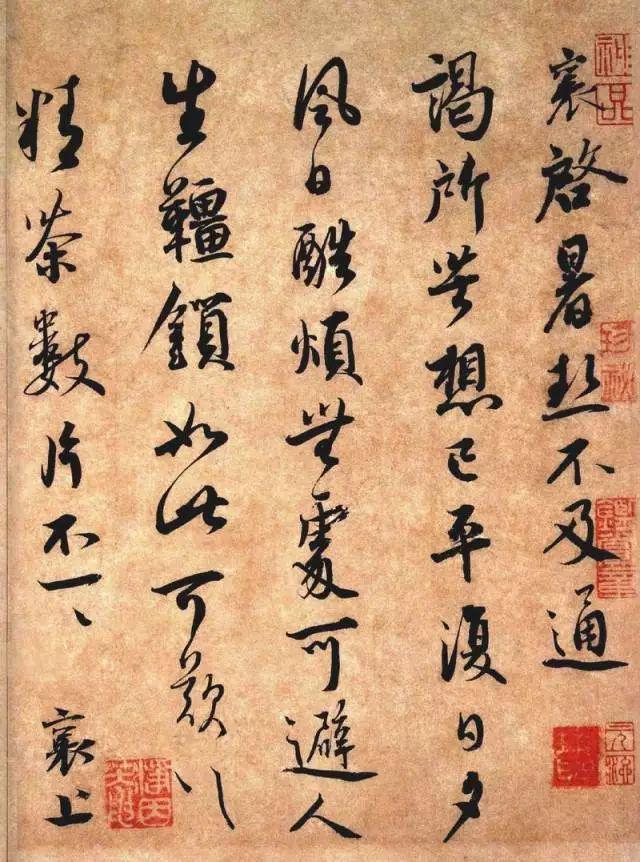 襄啓暑熱不及通
謁所苦想已平復日夕
風日酷煩無處可避人
生韁鎖如此可歎可歎
精茶數片不一一
襄上